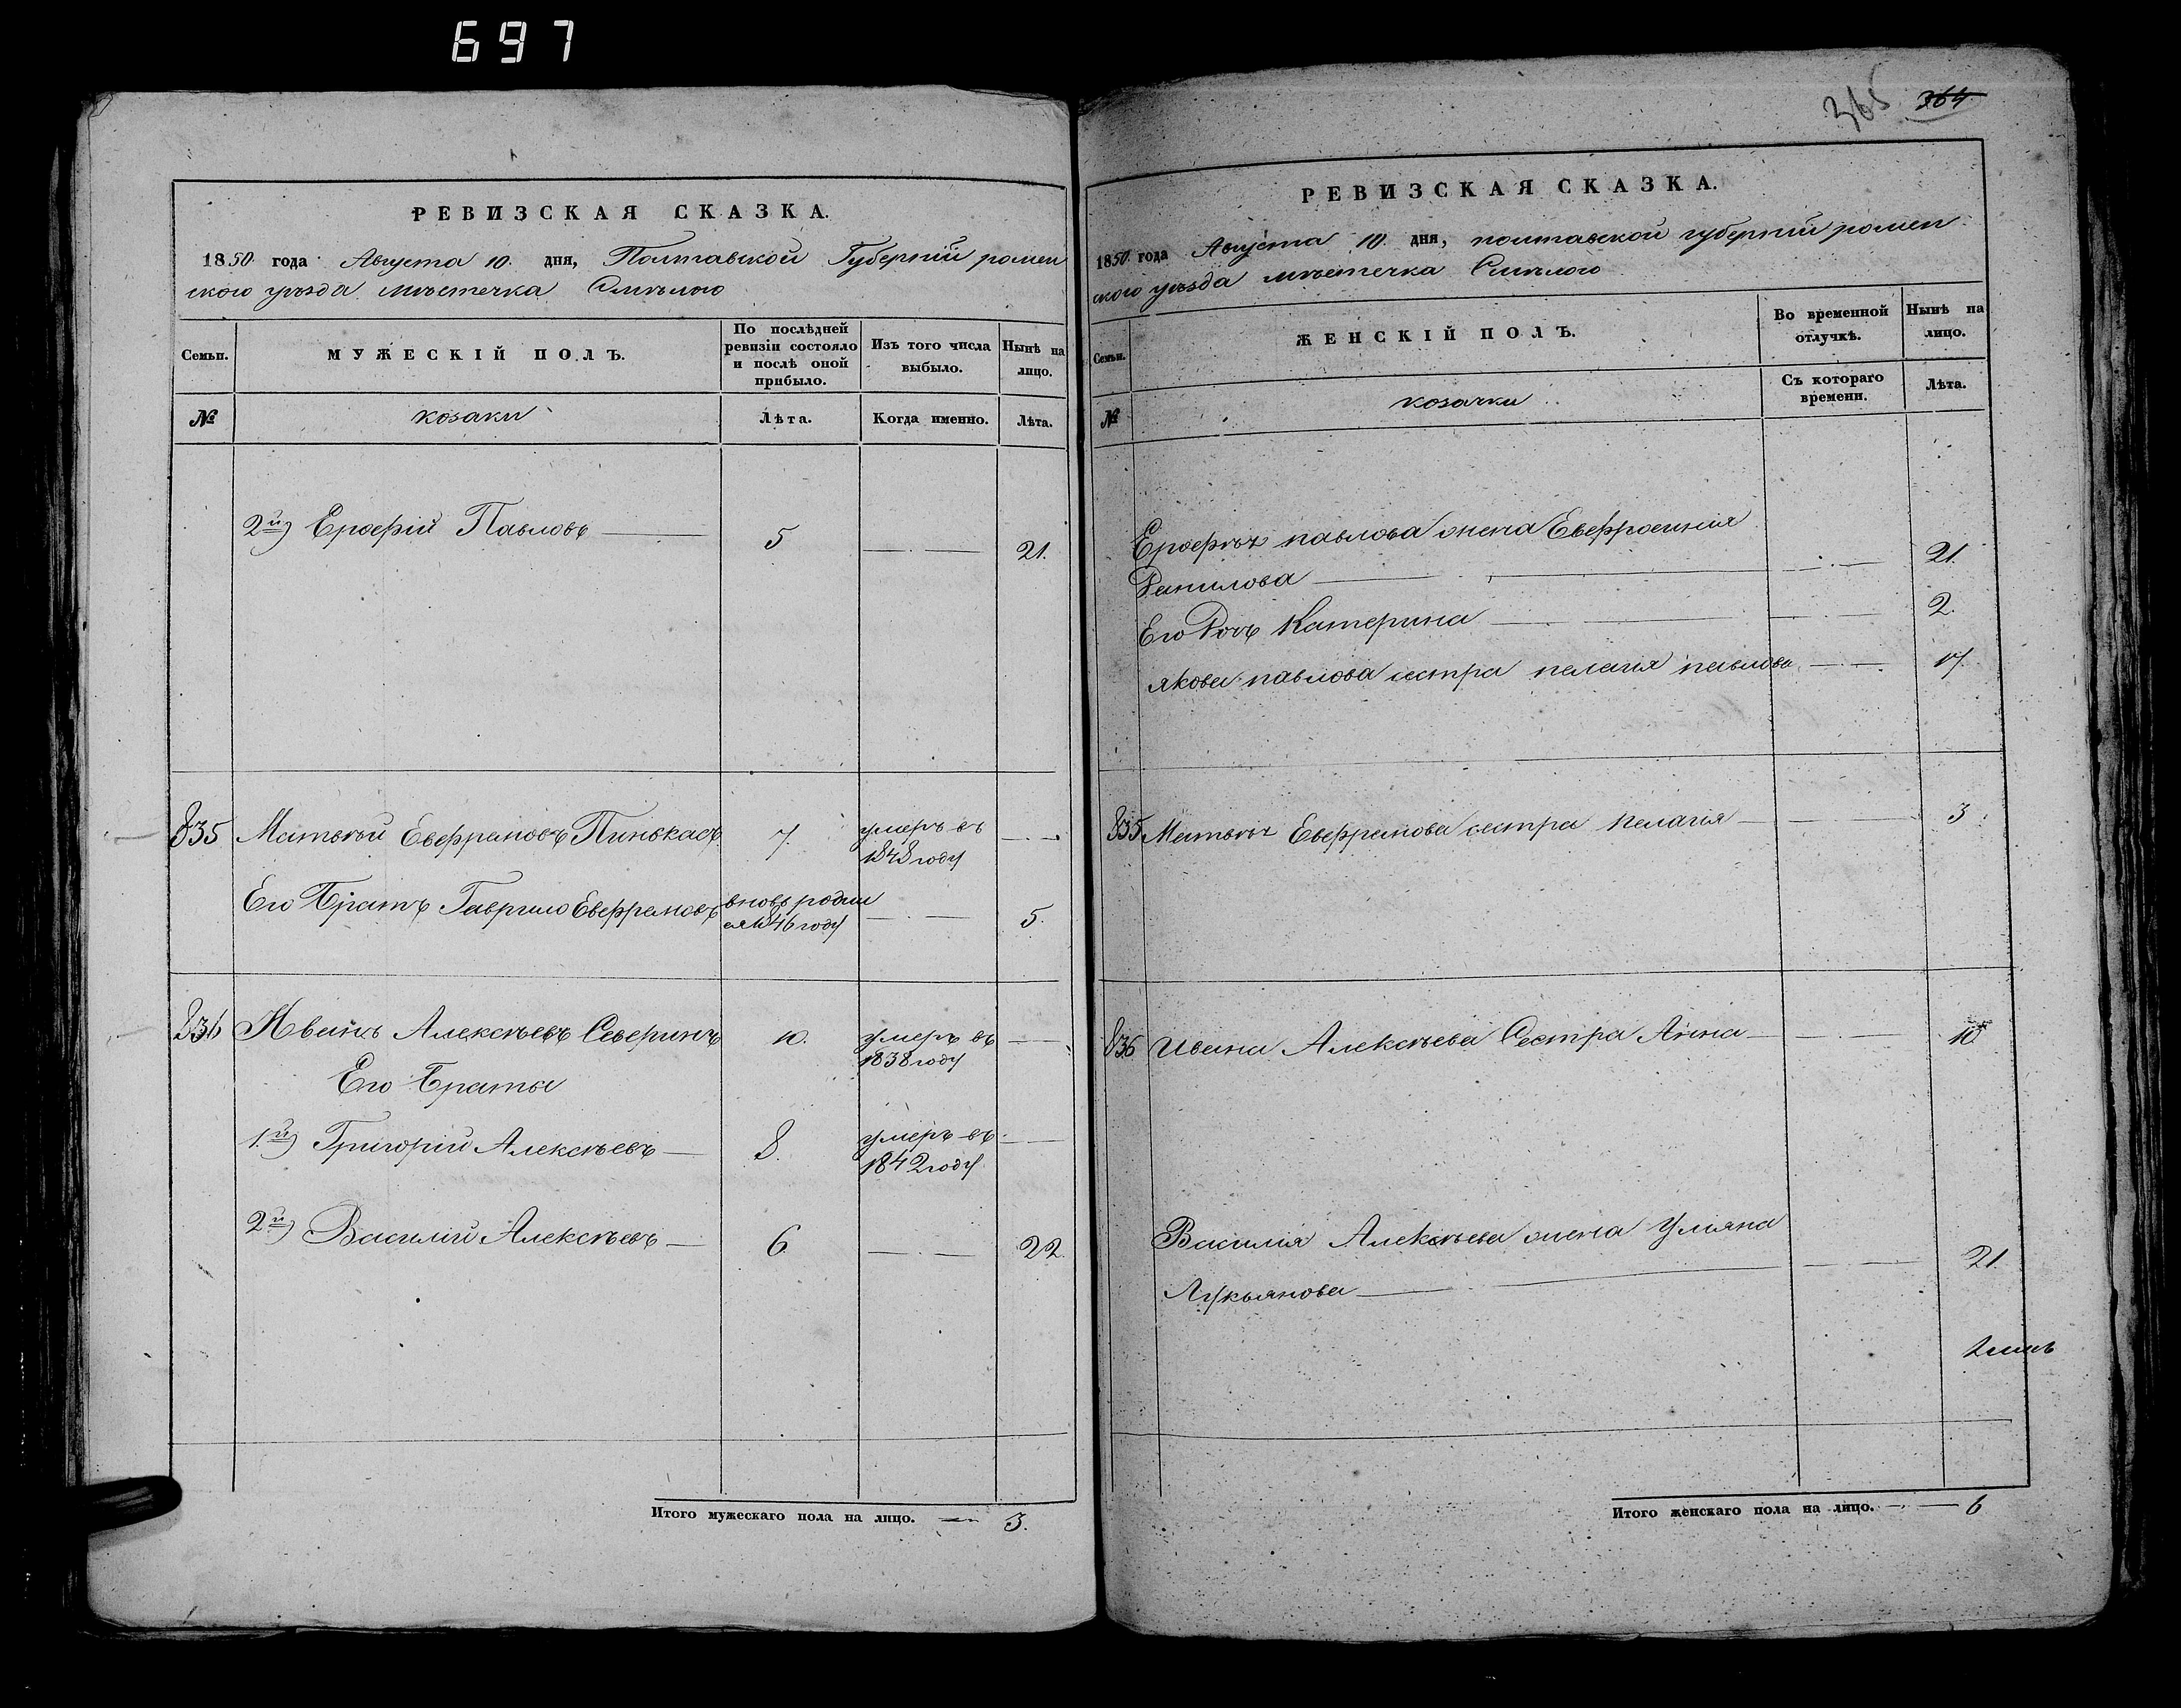 697
РЕВИЗСКАЯ СКАЗКА.
1850 года Августа 10. дня, Полтавской Губерніи ромен
ского уѣзда мѣстечка Смѣлого
Семьи.
МУЖЕСКІЙ ПОЛЪ.
По послѣдней ревизіи состояло и послѣ оной прибыло.
Изъ того числа выбыло.
Нынѣ на лицо.
№
козаки
Лѣта.
Когда именно.
Лѣта.
2й) Ерофій Павловъ 5 21.
835 Матвѣй Евфремовъ Пинькасъ 7. умеръ въ 1848 году
Его Братъ Гаврило Евфремовъ вновь родил ся 1846 году 5.
836 Иванъ Алексѣевъ Северинъ 10. умеръ въ 1838 году
Его Браты
1й) Григорій Алексѣевъ 8. умеръ въ 1842 году
2й) Василій Алексѣевъ 6. 22.
Итого мужескаго пола на лицо. 3.
365 364
РЕВИЗСКАЯ СКАЗКА.
1850 года Августа 10 дня, полтавской губерніи ромен
ского уѣзда мѣстечка Смѣлого
Семьи.
ЖЕНСКІЙ ПОЛЪ.
Во временной отлучкѣ.
Нынѣ на лицо.
№
козачки
Съ котораго времени.
Лѣта.
Ерофѣя павлова жена Евфросинія
Данилова 21.
Его Дочь Катерина 2.
якова павлова сестра пелагія павлова 17.
835 Матвѣя Евфремова сестра пелагія 3
836 Ивана Алексѣева Сестра Анна 10
Василія Алексѣева жена Уляна
Лукьянова 21.
Итого женскаго пола на лицо. 6